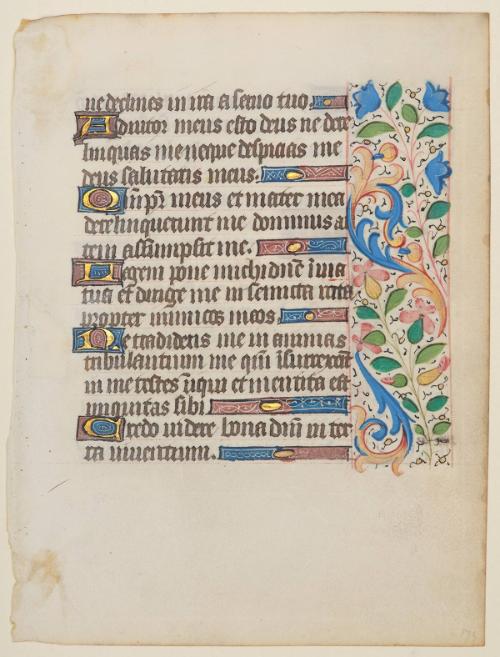 ne declines in ira a servo tuo.
Adiutor meus esto deus ne dere
linquas me neque despicias me
deus salutaris meus.
Qm̄ pr̄ meus et mater mea
dereliquerunt me dominus au
tem assumpsit me.
Legem pone michi dn̄e ī via
tua et dirige me in semita recta
propter inimicos meos.
Ne tradideris me in animas
tribulantium me qm̄ īsurrexer̄t
in me testes īiqui et mentita est
iniquitas sibi.
Credo videre bona dn̄i in ter
ra viventium.